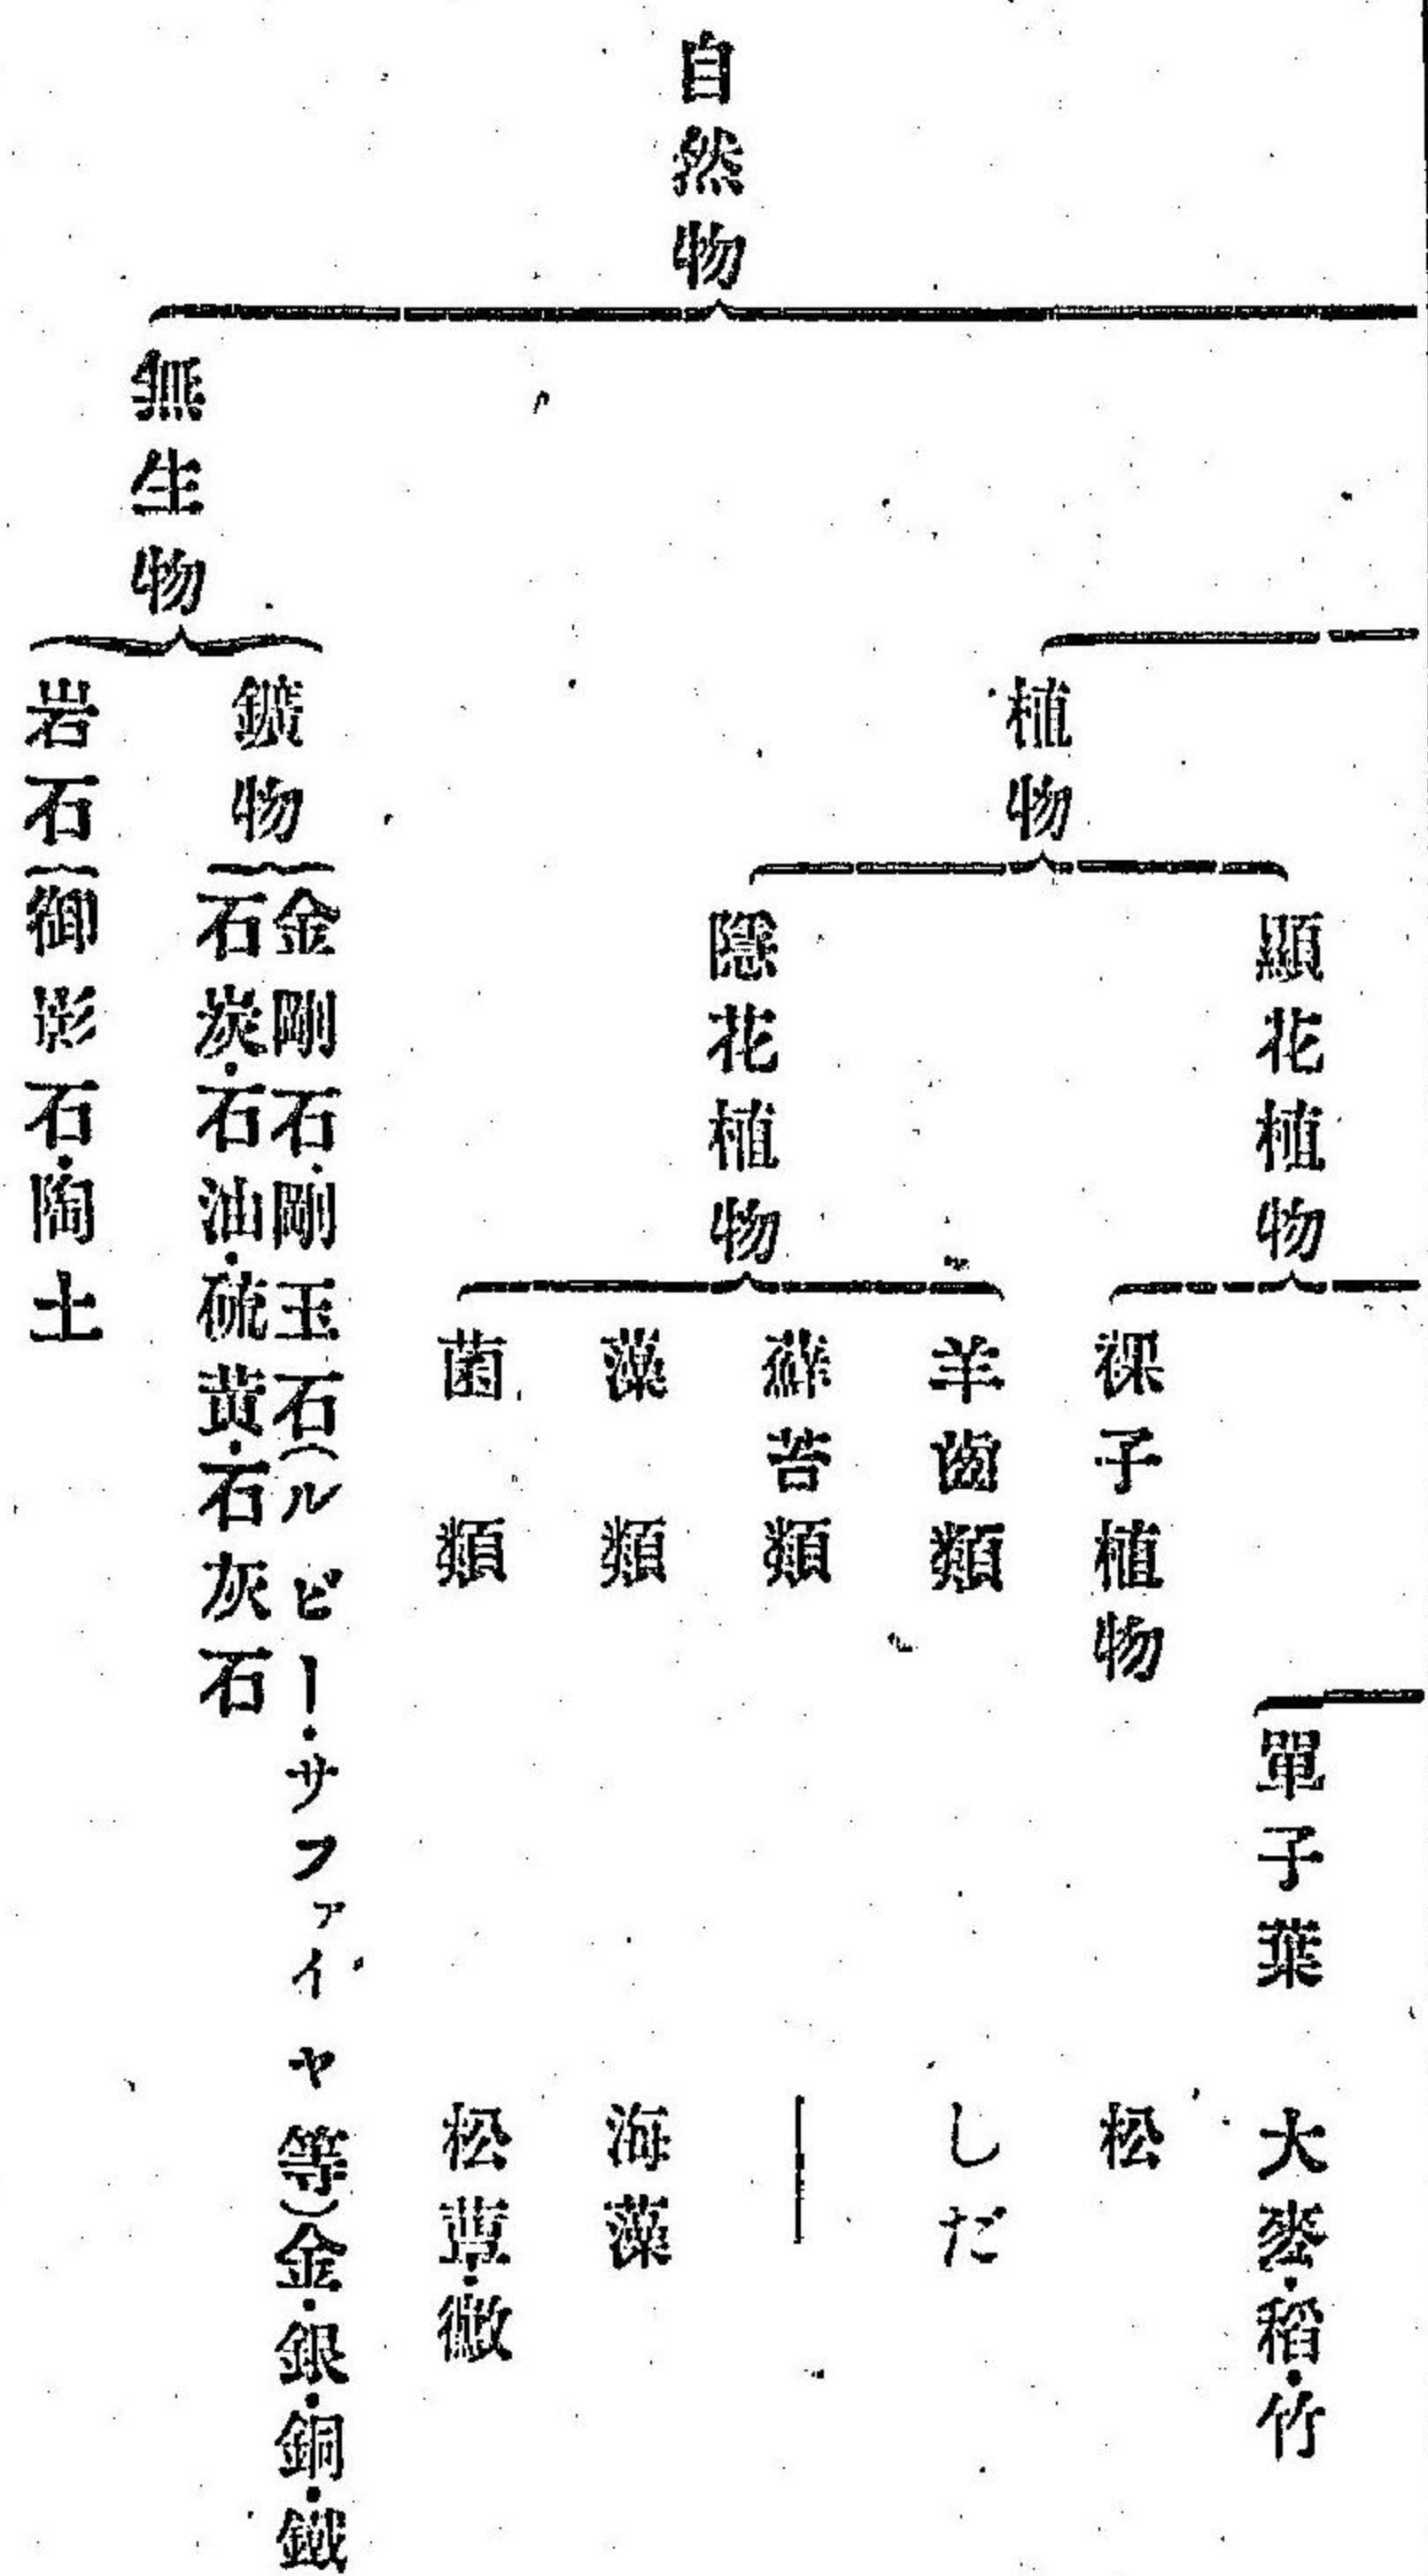 自然物
植物
顯花植物
單子葉 大麥・稻・竹
裸子植物 松
隱花植物
羊齒類 しだ
蘚苔類 ―
藻類 海藻
菌類 松蕈・黴
無生物
鑛物
金剛石・剛玉石(ルビー・サファイヤ等)金・銀・銅・鐵
石炭・石油・硫黄・石灰石
岩石
御影石・陶土